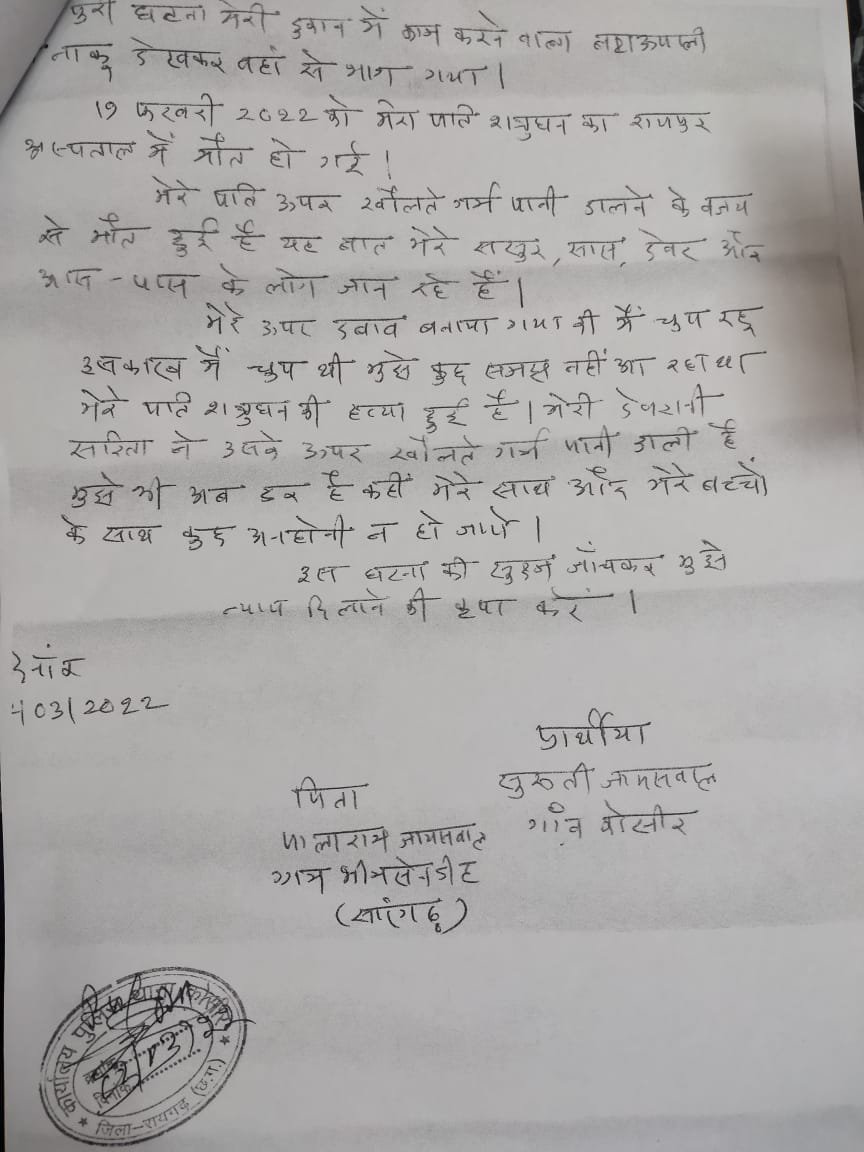 पुरी घटना मेरी दुकान में काम करने वाला
नाकू देखकर वहां से भाग गया।
19 फरवरी 2022 को मेरा पति शत्रुघन का रायपुर
अस्पताल में मौत हो गई।
मेरे पति ऊपर खौलते गर्म पानी डालने के वजय
से मौत हुई है यह बात मेरे ससुर, सास, देवर और
आस-पास के लोग जान रहे हैं।
मेरे ऊपर दबाव बनाया गया की मैं चुप रहू
इसकारण मैं चुप थी मुझे कुछ समझ नहीं आ रहा था
मेरे पति शत्रुघन की हत्या हुई है। मेरी देवरानी
सरिता ने उसके ऊपर खौलते गर्म पानी डाली है
मुझे भी अब डर है कहीं मेरे साथ और मेरे बच्चों
के साथ कुछ अनहोनी न हो जाये।
इस घटना की सुक्ष्म जाँचकर मुझे
न्याय दिलाने की कृपा करें।
03/2022
प्रार्थीया
सुरुती जायसवाल
गांव कोसीर
पिता
जायसवाल
ग्राम भीमसेनडीह
कार्यालय पुलिस थाना कोसीर
दिनांक
जिला-रायगढ़ (छ.ग.)